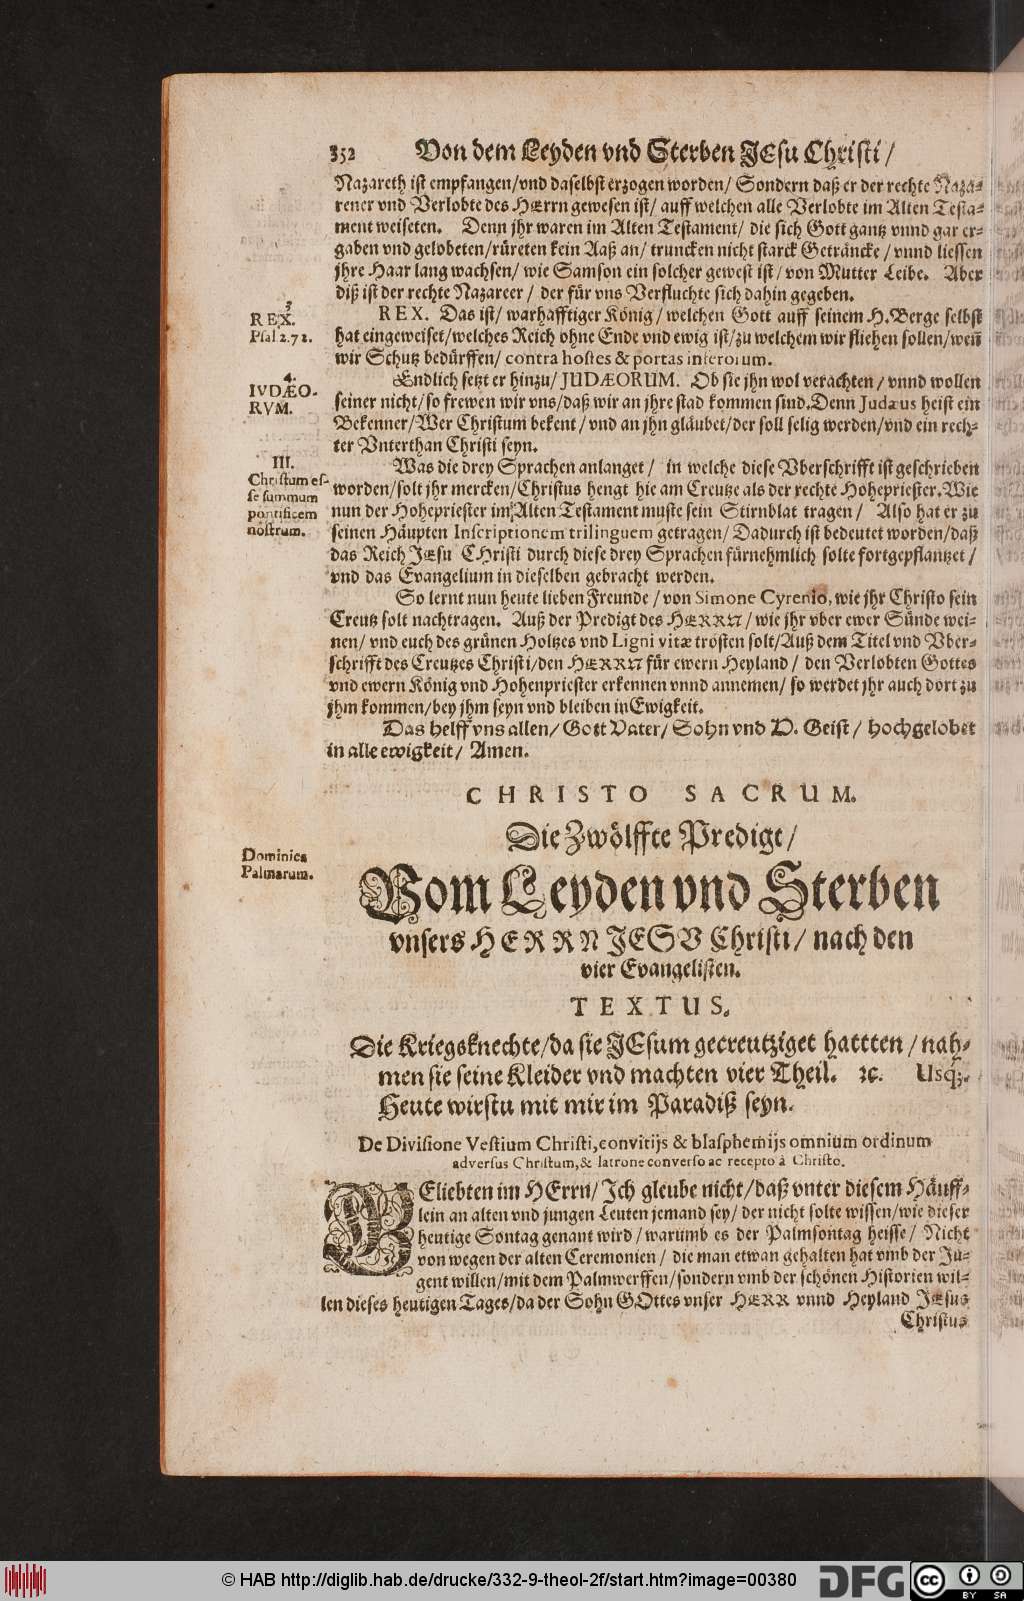 352 Von dem Leyden vnd Sterben JEsu Christi /
Nazareth ist empfangen/vnd daselbst erzogen worden/ Sondern daß er der rechte Naza-
rener vnd Verlobte des HErrn gewesen ist/ auff welchen alle Verlobte im Alten Testa-
ment weiseten. Denn jhr waren im Alten Testament/ die sich Gott gantz vnnd gar er-
gaben vnd gelobeten/rüreten kein Aaß an/ truncken nicht starck Geträncke/ vnnd liessen
jhre Haar lang wachsen/ wie Samson ein solcher gewest ist/ von Mutter Leibe. Aber
diß ist der rechte Nazareer/ der für vns Verfluchte sich dahin gegeben.
3
REX.
Psal 2.72.
REX. Das ist/ warhafftiger König/ welchen Gott auff seinem H. Berge selbst
hat eingeweiset/welches Reich ohne Ende vnd ewig ist/zu welchem wir fliehen sollen/wen
wir Schutz bedürffen/ contra hostes & portas inferorum.
4.
IVDÆO-
RVM.
Endlich setzt er hinzu/ JUDÆORUM. Ob sie jhn wol verachten/ vnnd wollen
seiner nicht/so frewen wir vns/daß wir an jhre stad kommen sind. Denn Judæus heist ein
Bekenner/Wer Christum bekent/ vnd an jhn gläubet/der soll selig werden/vnd ein rech-
ter Vnterthan Christi seyn.
III.
Christum es-
se summum
pontificem
nostrum.
Was die drey Sprachen anlanget/ in welche diese Vberschrifft ist geschrieben
worden/solt jhr mercken/Christus hengt hie am Creutze als der rechte Hohepriester. Wie
nun der Hohepriester im Alten Testament muste sein Stirnblat tragen/ Also hat er zu
seinen Häupten Inscriptionem trilinguem getragen/ Dadurch ist bedeutet worden/daß
das Reich JEsu CHristi durch diese drey Sprachen fürnehmlich solte fortgepflantzet/
vnd das Evangelium in dieselben gebracht werden.
So lernt nun heute lieben Freunde/ von Simone Cyrenio, wie jhr Christo sein
Creutz solt nachtragen. Auß der Predigt des HERRN/ wie jhr vber ewer Sünde wei-
nen/ vnd euch des grünen Holtzes vnd Ligni vitæ trösten solt/Auß dem Titel vnd Vber-
schrifft des Creutzes Christi/den HERRN für ewern Heyland/ den Verlobten Gottes
vnd ewern König vnd Hohenpriester erkennen vnnd annemen/ so werdet jhr auch dort zu
jhm kommen/bey jhm seyn vnd bleiben in Ewigkeit.
Das helff vns allen/ Gott Vater/ Sohn vnd H. Geist/ hochgelobet
in alle ewigkeit/ Amen.
CHRISTO SACRUM.
Die Zwölffte Predigt/
Dominica
Palmarum.
Vom Leyden vnd Sterben
vnsers HERRN JESV Christi/ nach den
vier Evangelisten.
TEXTUS.
Die Kriegsknechte/da sie JEsum gecreutziget hattten/ nah-
men sie seine Kleider vnd machten vier Theil. ꝛc. Usq;.
Heute wirstu mit mir im Paradiß seyn.
De Divisione Vestium Christi, convitijs & blasphemijs omnium ordinum
adversus Christum, & latrone converso ac recepto à Christo.
GEliebten im HErrn/ Jch gleube nicht/daß vnter diesem Häuff-
lein an alten vnd jungen Leuten jemand sey/ der nicht solte wissen/wie dieser
heutige Sontag genant wird/ warumb es der Palmsontag heisse/ Nicht
von wegen der alten Ceremonien/ die man etwan gehalten hat vmb der Ju-
gent willen/mit dem Palmwerffen/sondern vmb der schönen Historien wil-
len dieses heutigen Tages/da der Sohn GOttes vnser HERR vnnd Heyland JEsus
Christus
© HAB http://diglib.hab.de/drucke/332-9-theol-2f/start.htm?image=00380
DFG
cc BY SA